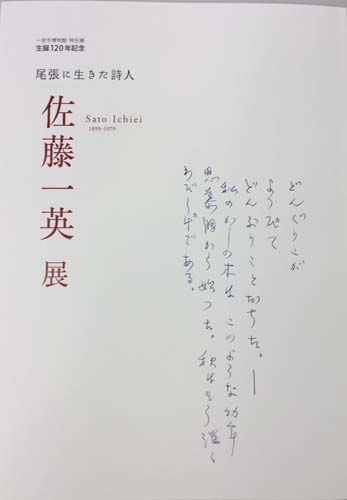 一宮市博物館 特別展
生誕120年記念
尾張に生きた詩人
佐藤一英 展
Sato Ichiei
1899-1979
どんぐりこが
ようぴて
どんぶりことおちた。―
私のかしの木は このような幼年
思慕調から始つた。秋はもう深く
わびしげである。